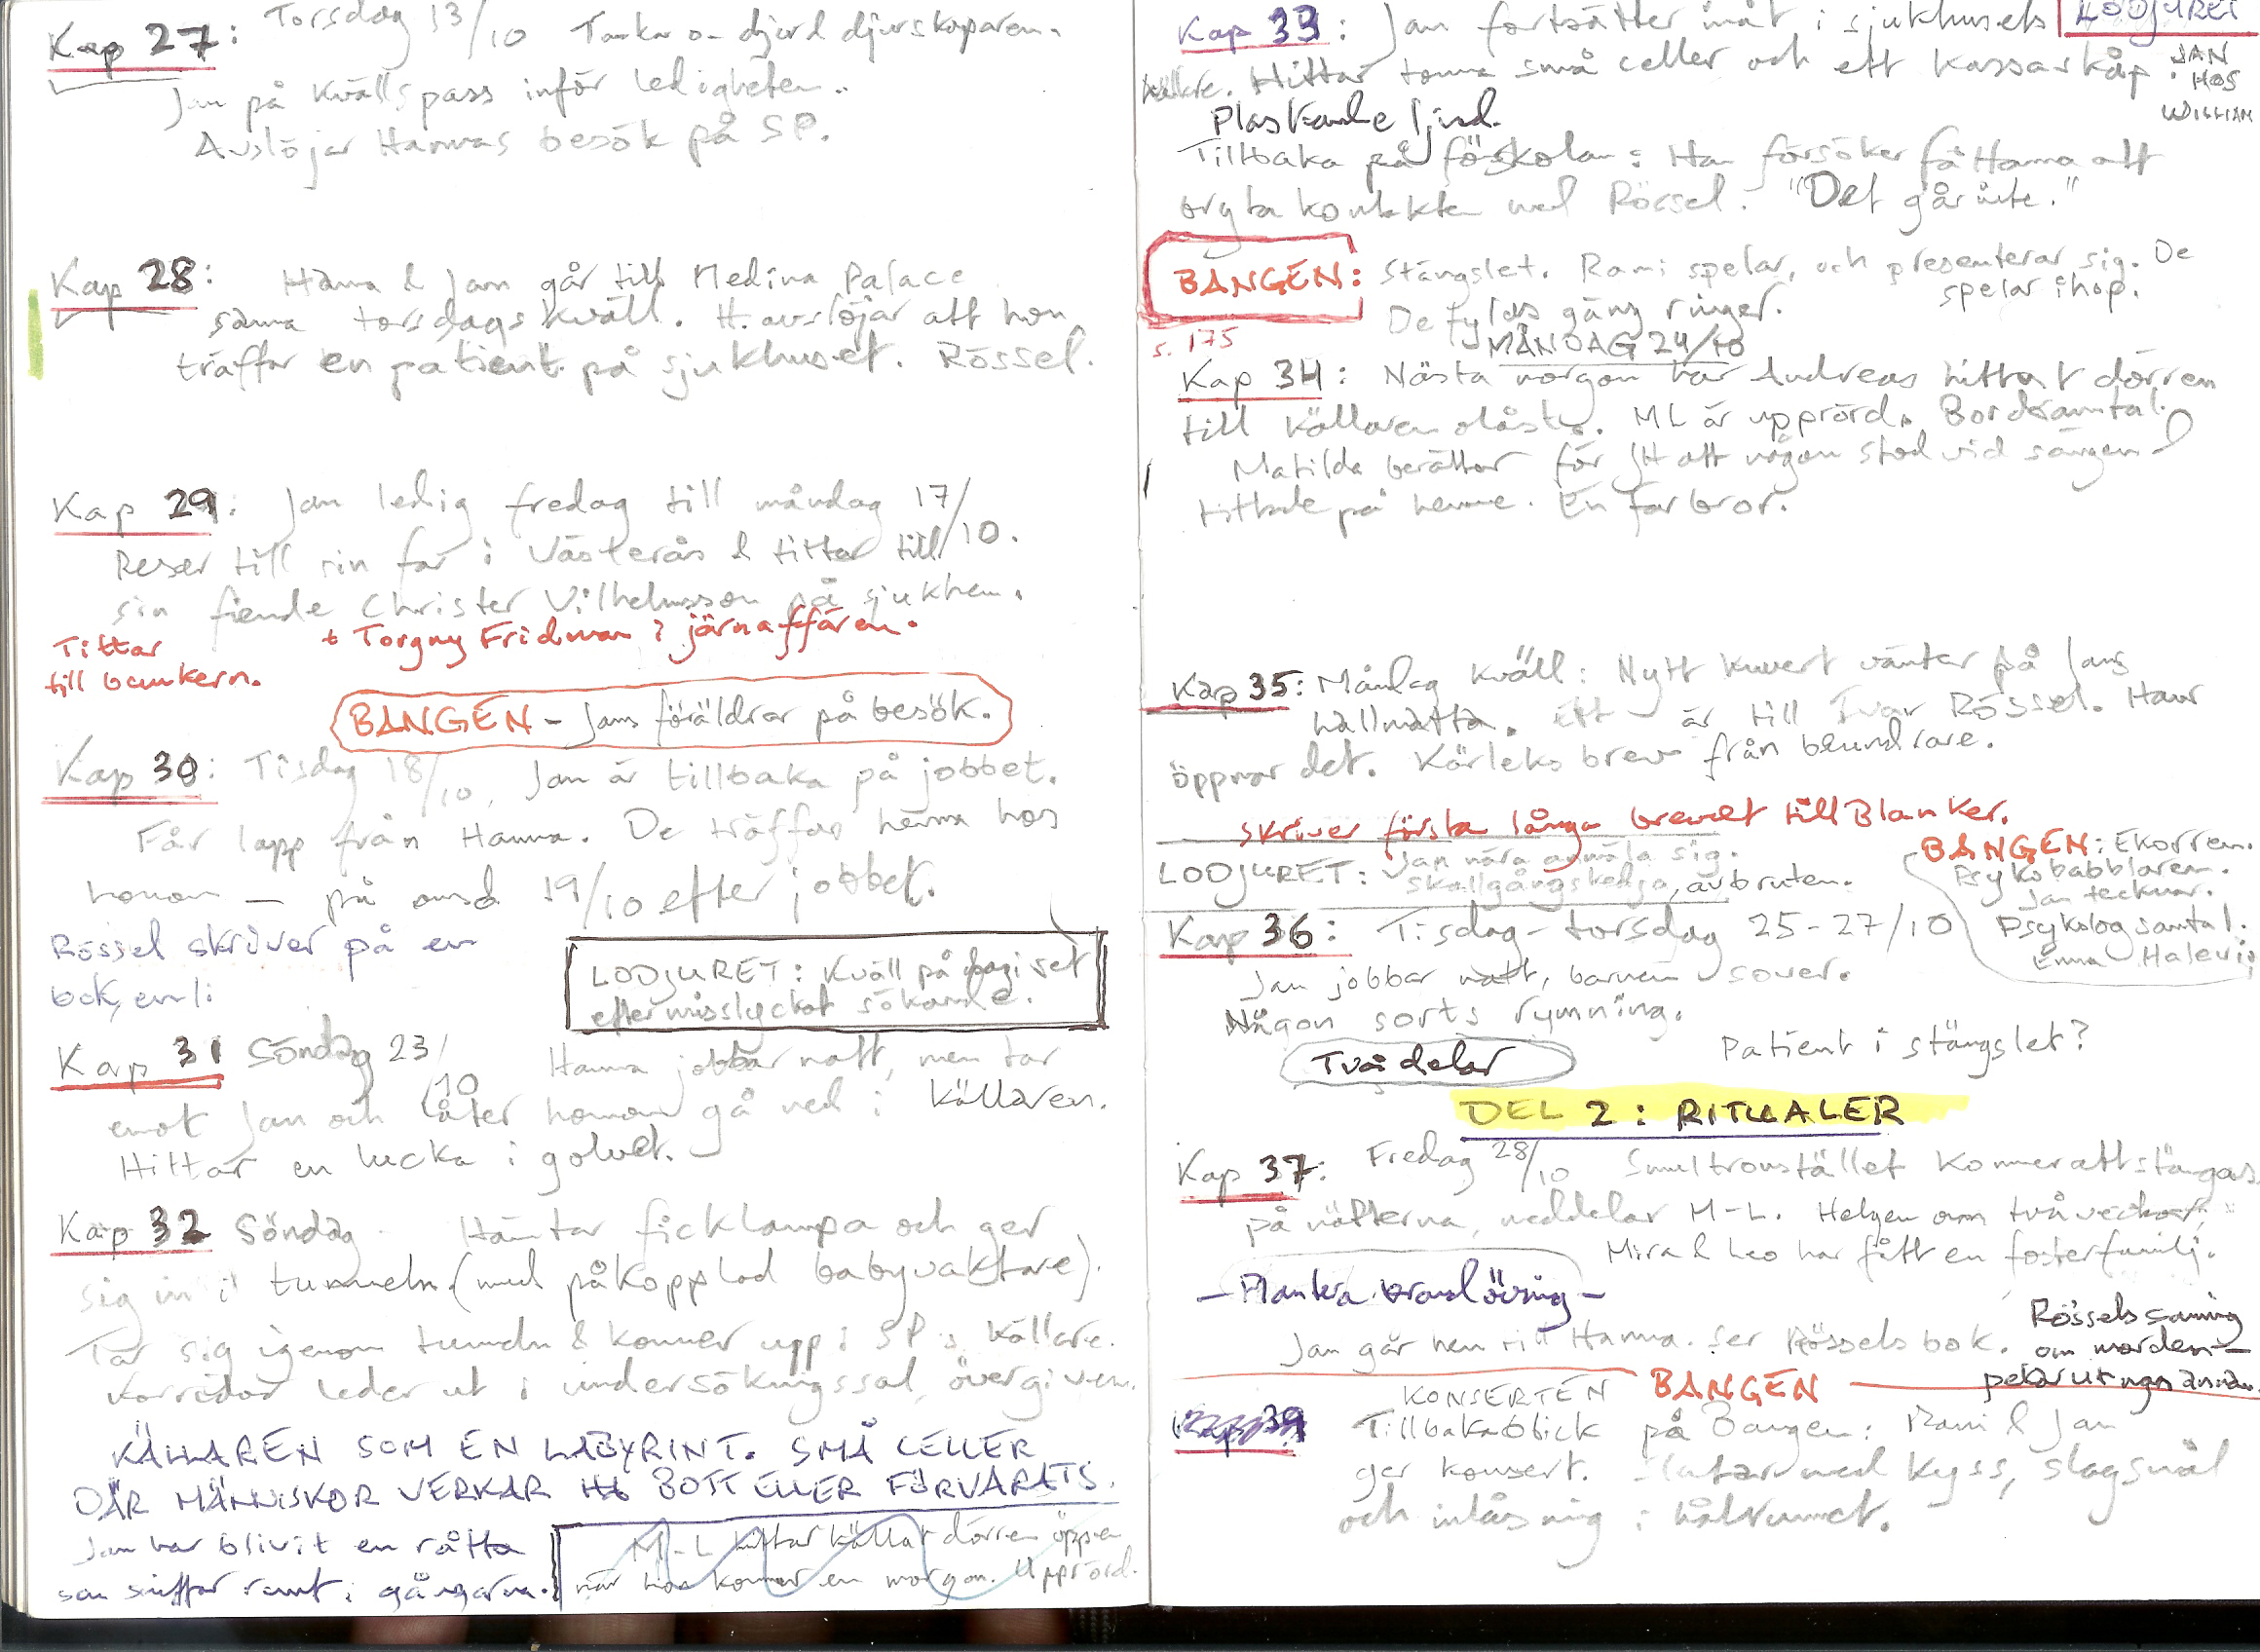 Kap 27: Torsdag 13/10 Tankar o djurskaparen.
Jan på kvällspass inför ledigheten.
Avslöjar Hannas besök på SP.
Kap 28: Hanna & Jan går till Medina Palace
samma torsdagskväll. H. avslöjar att hon
träffar en patient på sjukhuset. Rössel.
Kap 29: Jan ledig fredag till måndag 17/10.
Reser till sin far i Västerås & tittar till
sin fiende Christer Vilhelmsson på sjukhem.
Tittar
till bunkern.
+ Torgny Fridman i järnaffären.
BANGEN – Jans föräldrar på besök.
Kap 30: Tisdag 18/10. Jan är tillbaka på jobbet.
Får lapp från Hanna. De träffas hemma hos
honom – på onsd 19/10 efter jobbet.
Rössel skriver på en
bok, enl:
LODJURET: Kväll på dagiset
efter misslyckat sökande.
Kap 31 Söndag 23/10 Hanna jobbar natt, men tar
emot Jan och låter honom gå ned i källaren.
Hittar en lucka i golvet.
Kap 32 Söndag Hämtar ficklampa och ger
sig in i tunneln (med påkopplad babyvaktare).
Tar sig igenom tunneln & kommer upp i SP:s källare.
Korridor leder ut i undersökningssal, övergiven.
KÄLLAREN SOM EN LABYRINT. SMÅ CELLER
DÄR MÄNNISKOR VERKAR HA BOTT ELLER FÖRVARATS.
Jan har blivit en råtta
som sniffar runt i gångarna.
M-L hittar källardörren öppen
när hon kommer en morgon. Upprörd.
Kap 33: Jan fortsätter inåt i sjukhusets
källare. Hittar tomma små celler och ett kassaskåp.
LODJURET
JAN
HOS
WILLIAM
Plaskande ljud.
Tillbaka på förskolan: Han försöker få Hanna att
bryta kontakten med Rössel. "Det går inte."
BANGEN: Stängslet. Rami spelar, och presenterar sig. De
spelar ihop.
De fyldas gäng ringer.
s. 175
MÅNDAG 24/10
Kap 34: Nästa morgon har Andreas hittat dörren
till källaren olåst. ML är upprörd. Bordssamtal.
Matilda berättar för JH att någon stod vid sängen &
tittade på henne. En farbror.
Kap 35: Måndag kväll: Nytt kuvert väntar på Jans
hallmatta. Ett är till Ivar Rössel. Han
öppnar det. Kärleksbrev från beundrare.
Skriver första långa brevet till Blanker.
LODJURET: Jan nära anmäla sig.
Skallgångskedja, avbruten.
BANGEN: Ekorren.
Psykobabblaren.
Jan tecknar.
Psykologsamtal.
Emma Halevi
Kap 36: Tisdag-torsdag 25-27/10
Jan jobbar natt, barnen sover.
Någon sorts rymning.
Patient i stängslet?
Två delar
DEL 2: RITUALER
Kap 37: Fredag 28/10 Smultronstället kommer att stängas
på nätterna, meddelar M-L. Helgen om två veckor.
Mira & Leo har fått en fosterfamilj.
– Planka brandövning –
Jan går hem till Hanna. Ser Rössels bok.
Rössels sanning
om morden –
pekar ut ngn annan.
BANGEN
KONSERTEN
Kap 39 Tillbakablick på Bangen: Rami & Jan
ger konsert. Slutar med kyss, slagsmål
och inlåsning i hålrummet.